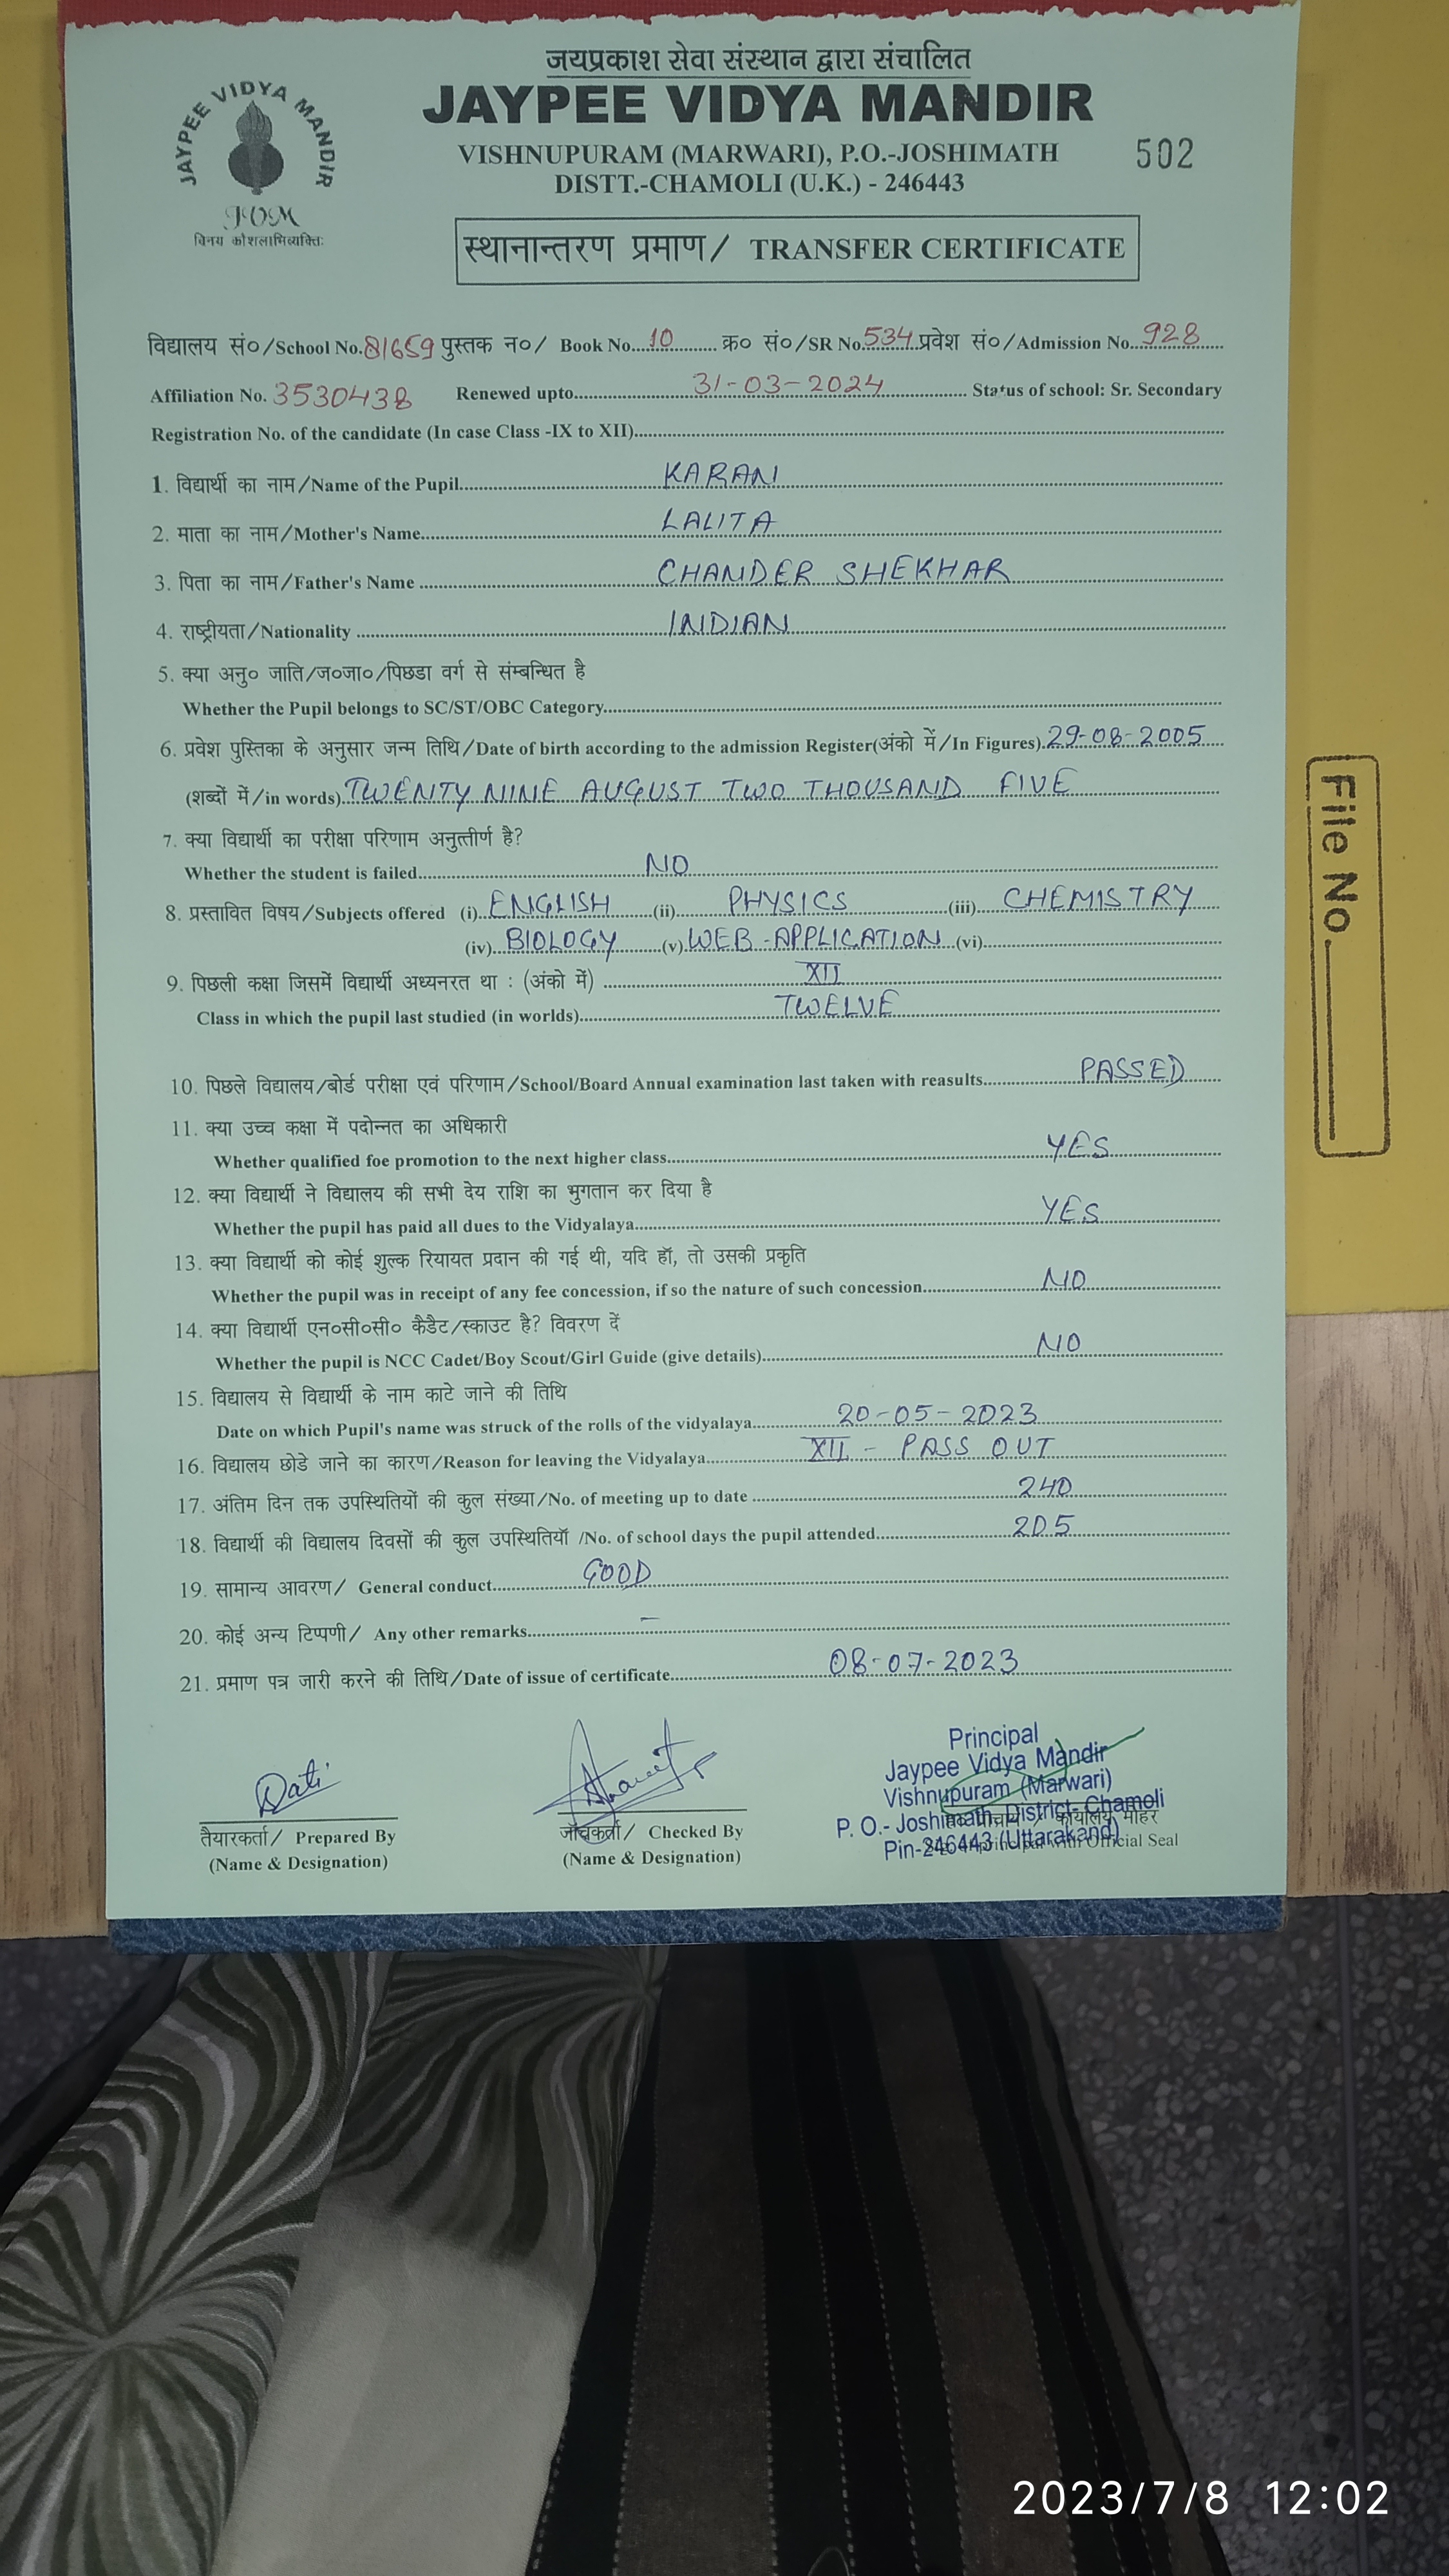 जयप्रकाश सेवा संस्थान द्वारा संचालित
JAYPEE VIDYA MANDIR
JAYPEE VIDYA MANDIR
VISHNUPURAM (MARWARI), P.O.-JOSHIMATH
502
DISTT.-CHAMOLI (U.K.) - 246443
JVM
विनय कौशलाभिव्यक्तिः
स्थानान्तरण प्रमाण/ TRANSFER CERTIFICATE
विद्यालय सं०/School No. 81659 पुस्तक न०/ Book No. 10 क्र० सं०/SR No. 534 प्रवेश सं०/Admission No. 928
Affiliation No. 3530438 Renewed upto 31-03-2024 Status of school: Sr. Secondary
Registration No. of the candidate (In case Class -IX to XII)
1. विद्यार्थी का नाम/Name of the Pupil KARAN
2. माता का नाम/Mother's Name LALITA
3. पिता का नाम/Father's Name CHANDER SHEKHAR
4. राष्ट्रीयता/Nationality INDIAN
5. क्या अनु० जाति/ज०जा०/पिछडा वर्ग से संम्बन्धित है
Whether the Pupil belongs to SC/ST/OBC Category
6. प्रवेश पुस्तिका के अनुसार जन्म तिथि/Date of birth according to the admission Register(अंको में/In Figures) 29-08-2005
(शब्दों में/in words) TWENTY NINE AUGUST TWO THOUSAND FIVE
7. क्या विद्यार्थी का परीक्षा परिणाम अनुत्तीर्ण है?
Whether the student is failed NO
8. प्रस्तावित विषय/Subjects offered (i) ENGLISH (ii) PHYSICS (iii) CHEMISTRY
(iv) BIOLOGY (v) WEB-APPLICATION (vi)
9. पिछली कक्षा जिसमें विद्यार्थी अध्यनरत था : (अंको में) XII
Class in which the pupil last studied (in worlds) TWELVE
10. पिछले विद्यालय/बोर्ड परीक्षा एवं परिणाम/School/Board Annual examination last taken with reasults PASSED
11. क्या उच्च कक्षा में पदोन्नत का अधिकारी
Whether qualified foe promotion to the next higher class YES
12. क्या विद्यार्थी ने विद्यालय की सभी देय राशि का भुगतान कर दिया है
Whether the pupil has paid all dues to the Vidyalaya YES
13. क्या विद्यार्थी को कोई शुल्क रियायत प्रदान की गई थी, यदि हॉ, तो उसकी प्रकृति
Whether the pupil was in receipt of any fee concession, if so the nature of such concession NO
14. क्या विद्यार्थी एन०सी०सी० कैडैट/स्काउट है? विवरण दें
Whether the pupil is NCC Cadet/Boy Scout/Girl Guide (give details) NO
15. विद्यालय से विद्यार्थी के नाम काटे जाने की तिथि
Date on which Pupil's name was struck of the rolls of the vidyalaya 20-05-2023
16. विद्यालय छोडे जाने का कारण/Reason for leaving the Vidyalaya XII - PASS OUT
17. अंतिम दिन तक उपस्थितियों की कुल संख्या/No. of meeting up to date 240
18. विद्यार्थी की विद्यालय दिवसों की कुल उपस्थितियॉ /No. of school days the pupil attended 205
19. सामान्य आवरण/ General conduct GOOD
20. कोई अन्य टिप्पणी/ Any other remarks –
21. प्रमाण पत्र जारी करने की तिथि/Date of issue of certificate 08-07-2023
Principal
Jaypee Vidya Mandir
Vishnupuram (Marwari)
P. O.- Joshimath, District- Chamoli
Pin-246443 (Uttarakand)
कार्यालय मोहर
Official Seal
तैयारकर्ता/ Prepared By
(Name & Designation)
जॉचकर्ता/ Checked By
(Name & Designation)
File No.
2023/7/8 12:02